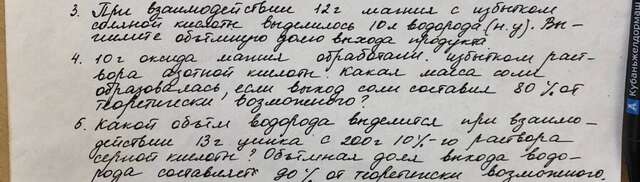 3. При взаимодействии 12г магния с избытком
соляной кислоты выделилось 10л водорода (н.у). Вы-
числите объёмную долю выхода продукта
4. 10г оксида магния обработали избытком раст-
вора азотной кислоты. Какая масса соли
образовалась, если выход соли составил 80% от
теоретически возможного?
5. Какой объём водорода выделится при взаимо-
действии 13г цинка с 200г 10%-го раствора
серной кислоты? Объёмная доля выхода водо-
рода составляет 90% от теоретически возможного.